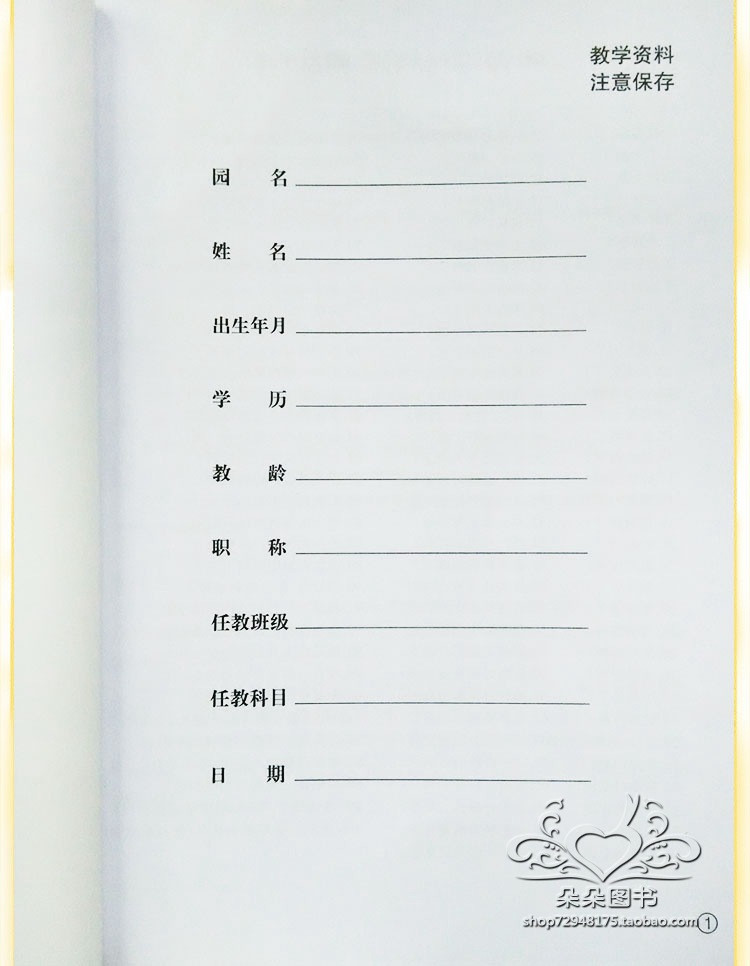 教学资料
注意保存
园 名
姓 名
出生年月
学 历
教 龄
职 称
任教班级
任教科目
日 期
朵朵图书
shop72948175.taobao.com
1